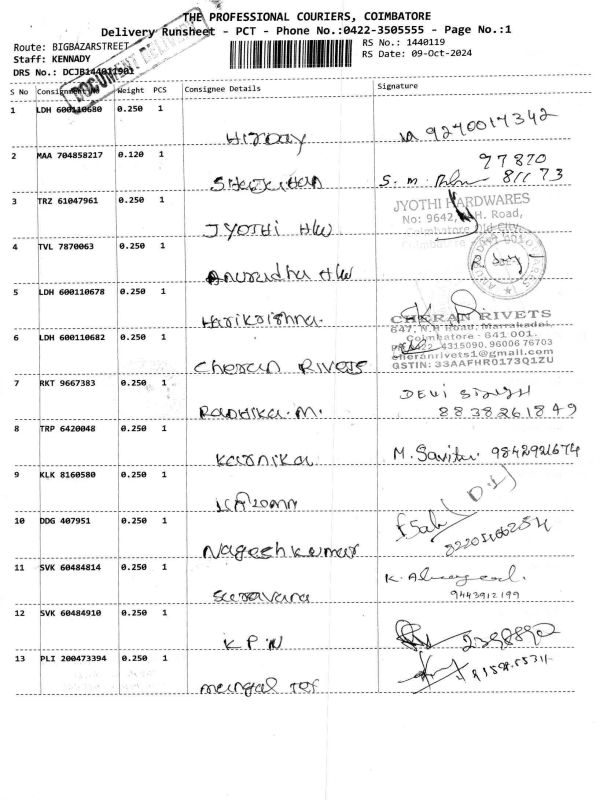 THE PROFESSIONAL COURIERS, COIMBATORE
Delivery Runsheet - PCT - Phone No.:0422-3505555 - Page No.:1
Route: BIGBAZARSTREET
RS No.: 1440119
Staff: KENNADY
RS Date: 09-Oct-2024
DRS No.: DCJB144011901
DOCUMENT DELIVERY
S No Consignment No Weight PCS Consignee Details Signature
1 LDH 600110680 0.250 1 Hirday 9240017342
2 MAA 704858217 0.120 1 97870
S. M. 81173
3 TRZ 61047961 0.250 1 JYOTHI H/W JYOTHI HARDWARES
No: 9642, N.H. Road,
Coimbatore
4 TVL 7870063 0.250 1 Anuradha H/W
5 LDH 600110678 0.250 1 Harikrishna.
CHERAN RIVETS
647, N.H Road, Marrakadai,
Coimbatore - 641 001.
6 LDH 600110682 0.250 1 Cheran RIVETS 4315090, 96006 76703
cheranrivets1@gmail.com
GSTIN: 33AAFHR0173Q1ZU
7 RKT 9667383 0.250 1 Radhika. M. DEVI SINGH
8838261849
8 TRP 6420048 0.250 1 Karnika M. Savitri 9842921674
9 KLK 8160580 0.250 1
10 DDG 407951 0.250 1 Nagesh kumar
11 SVK 60484814 0.250 1 Saravana K.
9443912199
12 SVK 60484910 0.250 1 K P N
13 PLI 200473394 0.250 1 Mangal